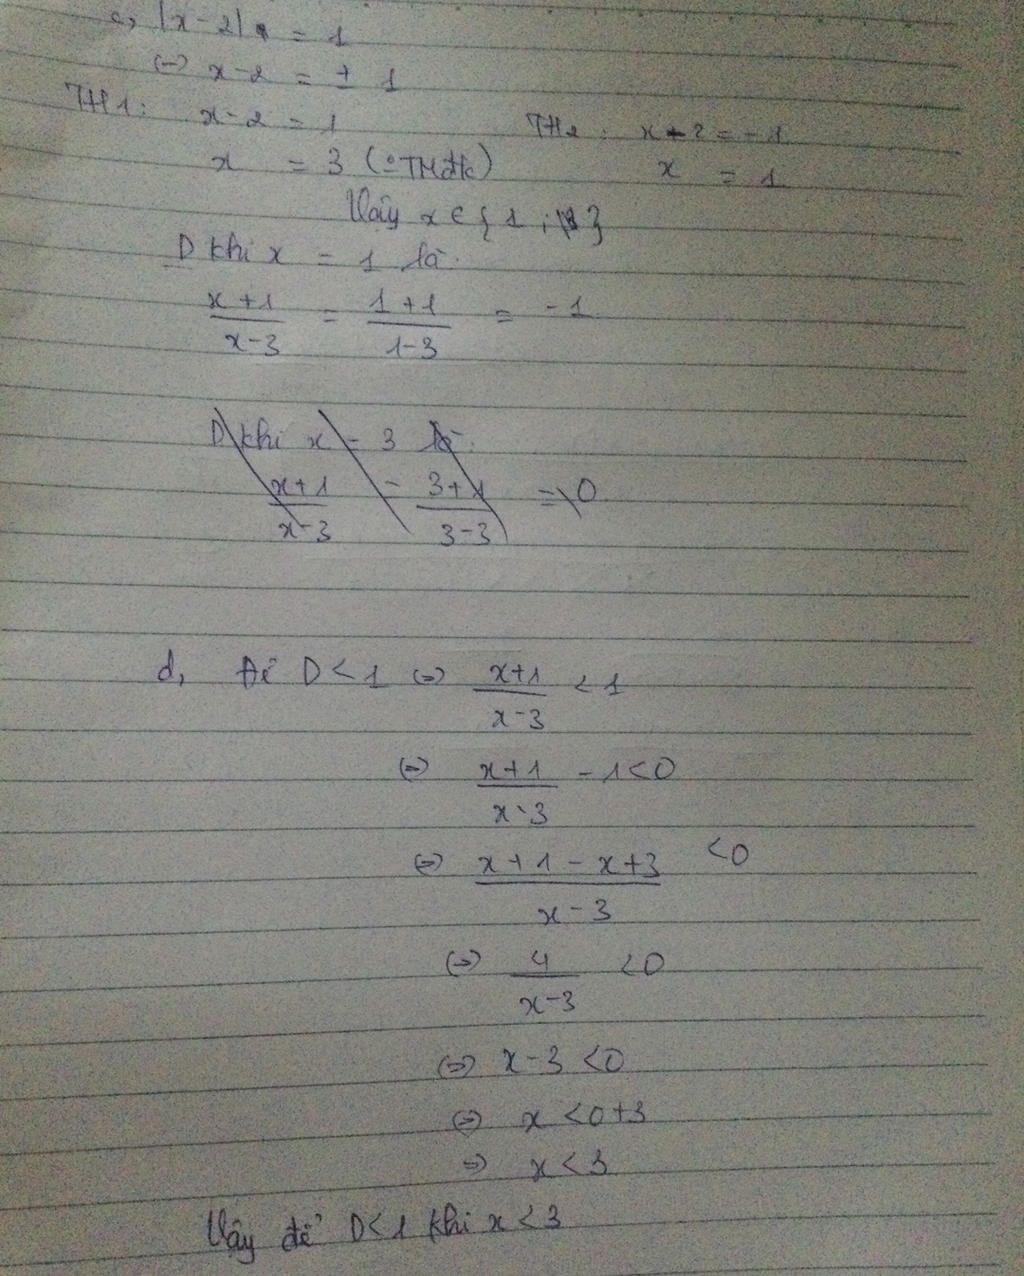 c, |x-2| = 1
(=) x-2 = ± 1
TH1: x-2 = 1 TH2: x-2 = -1
x = 3 (°TMđk) x = 1
Vậy x ∈ { 1 ; }
D khi x = 1 là:
x+1 / x-3 = 1+1 / 1-3 = -1
D khi x = 3 là:
x+1 / x-3 = 3+1 / 3-3 = 0
d, Để D < 1 (=) x+1 / x-3 < 1
(=) x+1 / x-3 - 1 < 0
(=) x+1-x+3 / x-3 < 0
(=) 4 / x-3 < 0
(=) x-3 < 0
(=) x < 0+3
=) x < 3
Vậy để D < 1 khi x < 3